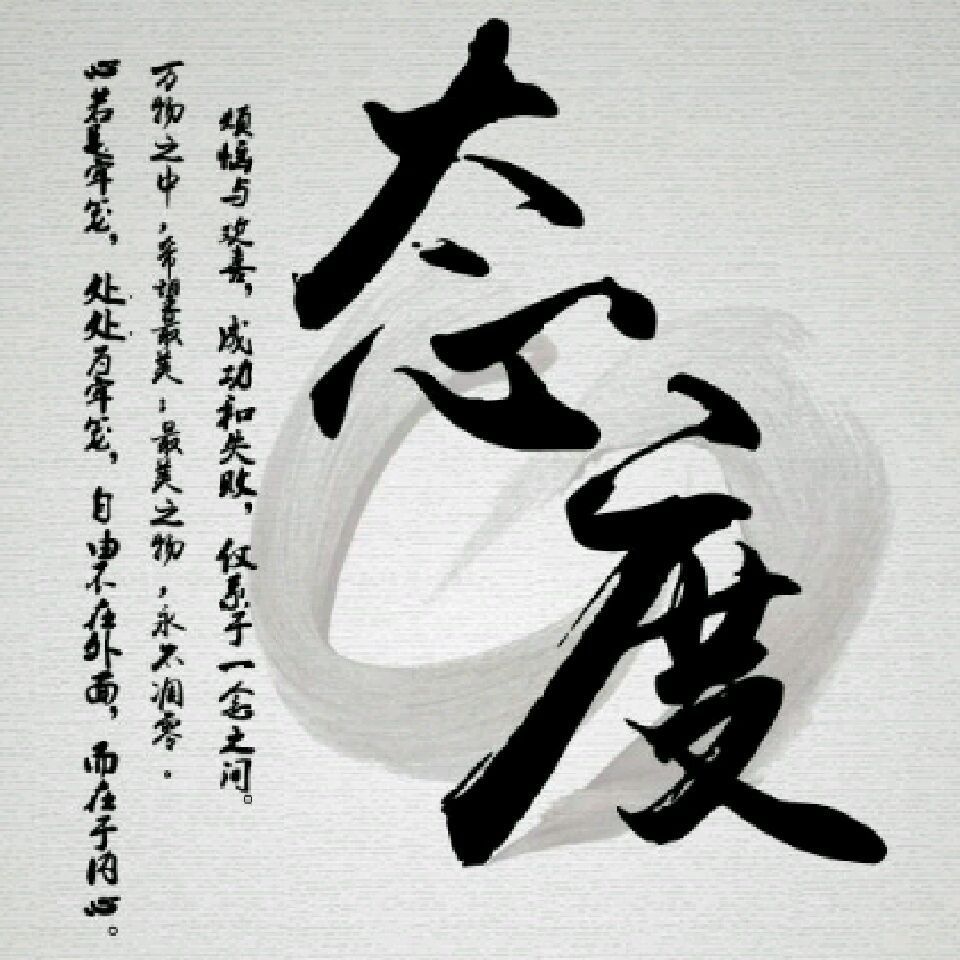 态度
烦恼与欢喜，成功和失败，仅系于一念之间。
万物之中，希望最美；最美之物，永不凋零。
心若是牢笼，处处为牢笼，自由不在外面，而在于内心。